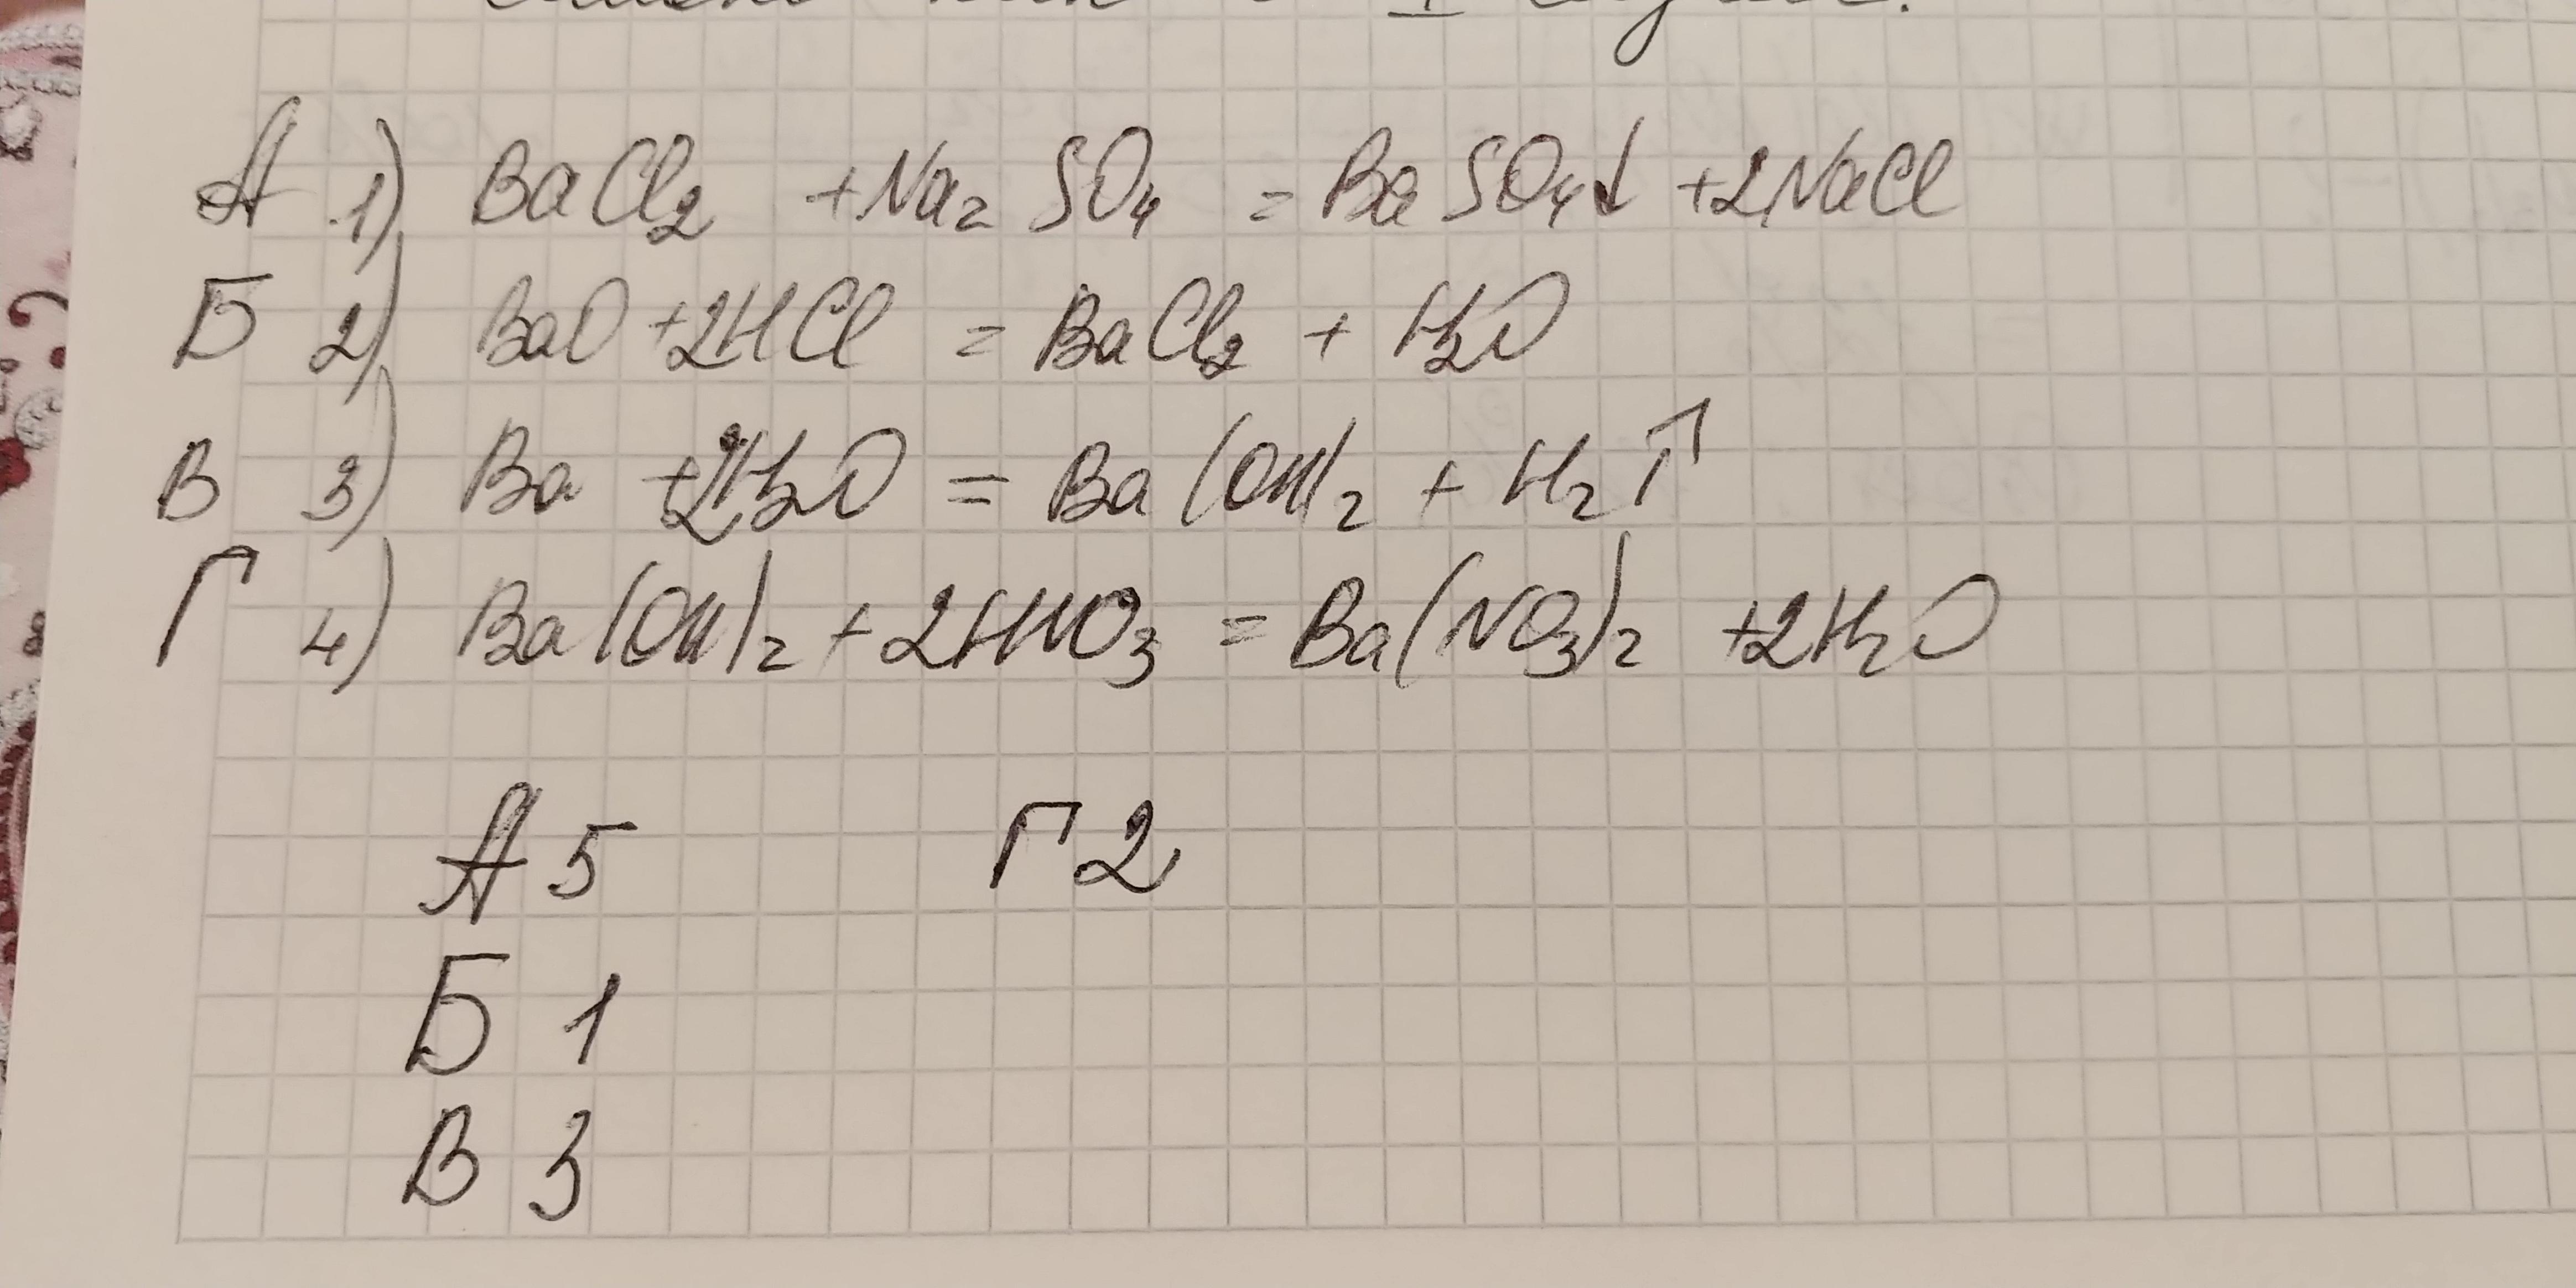 А 1) BaCl₂ + Na₂SO₄ = BaSO₄↓ + 2NaCl
Б 2) BaO + 2HCl = BaCl₂ + H₂O
В 3) Ba + 2H₂O = Ba(OH)₂ + H₂↑
Г 4) Ba(OH)₂ + 2HNO₃ = Ba(NO₃)₂ + 2H₂O
А 5 Г 2
Б 1
В 3